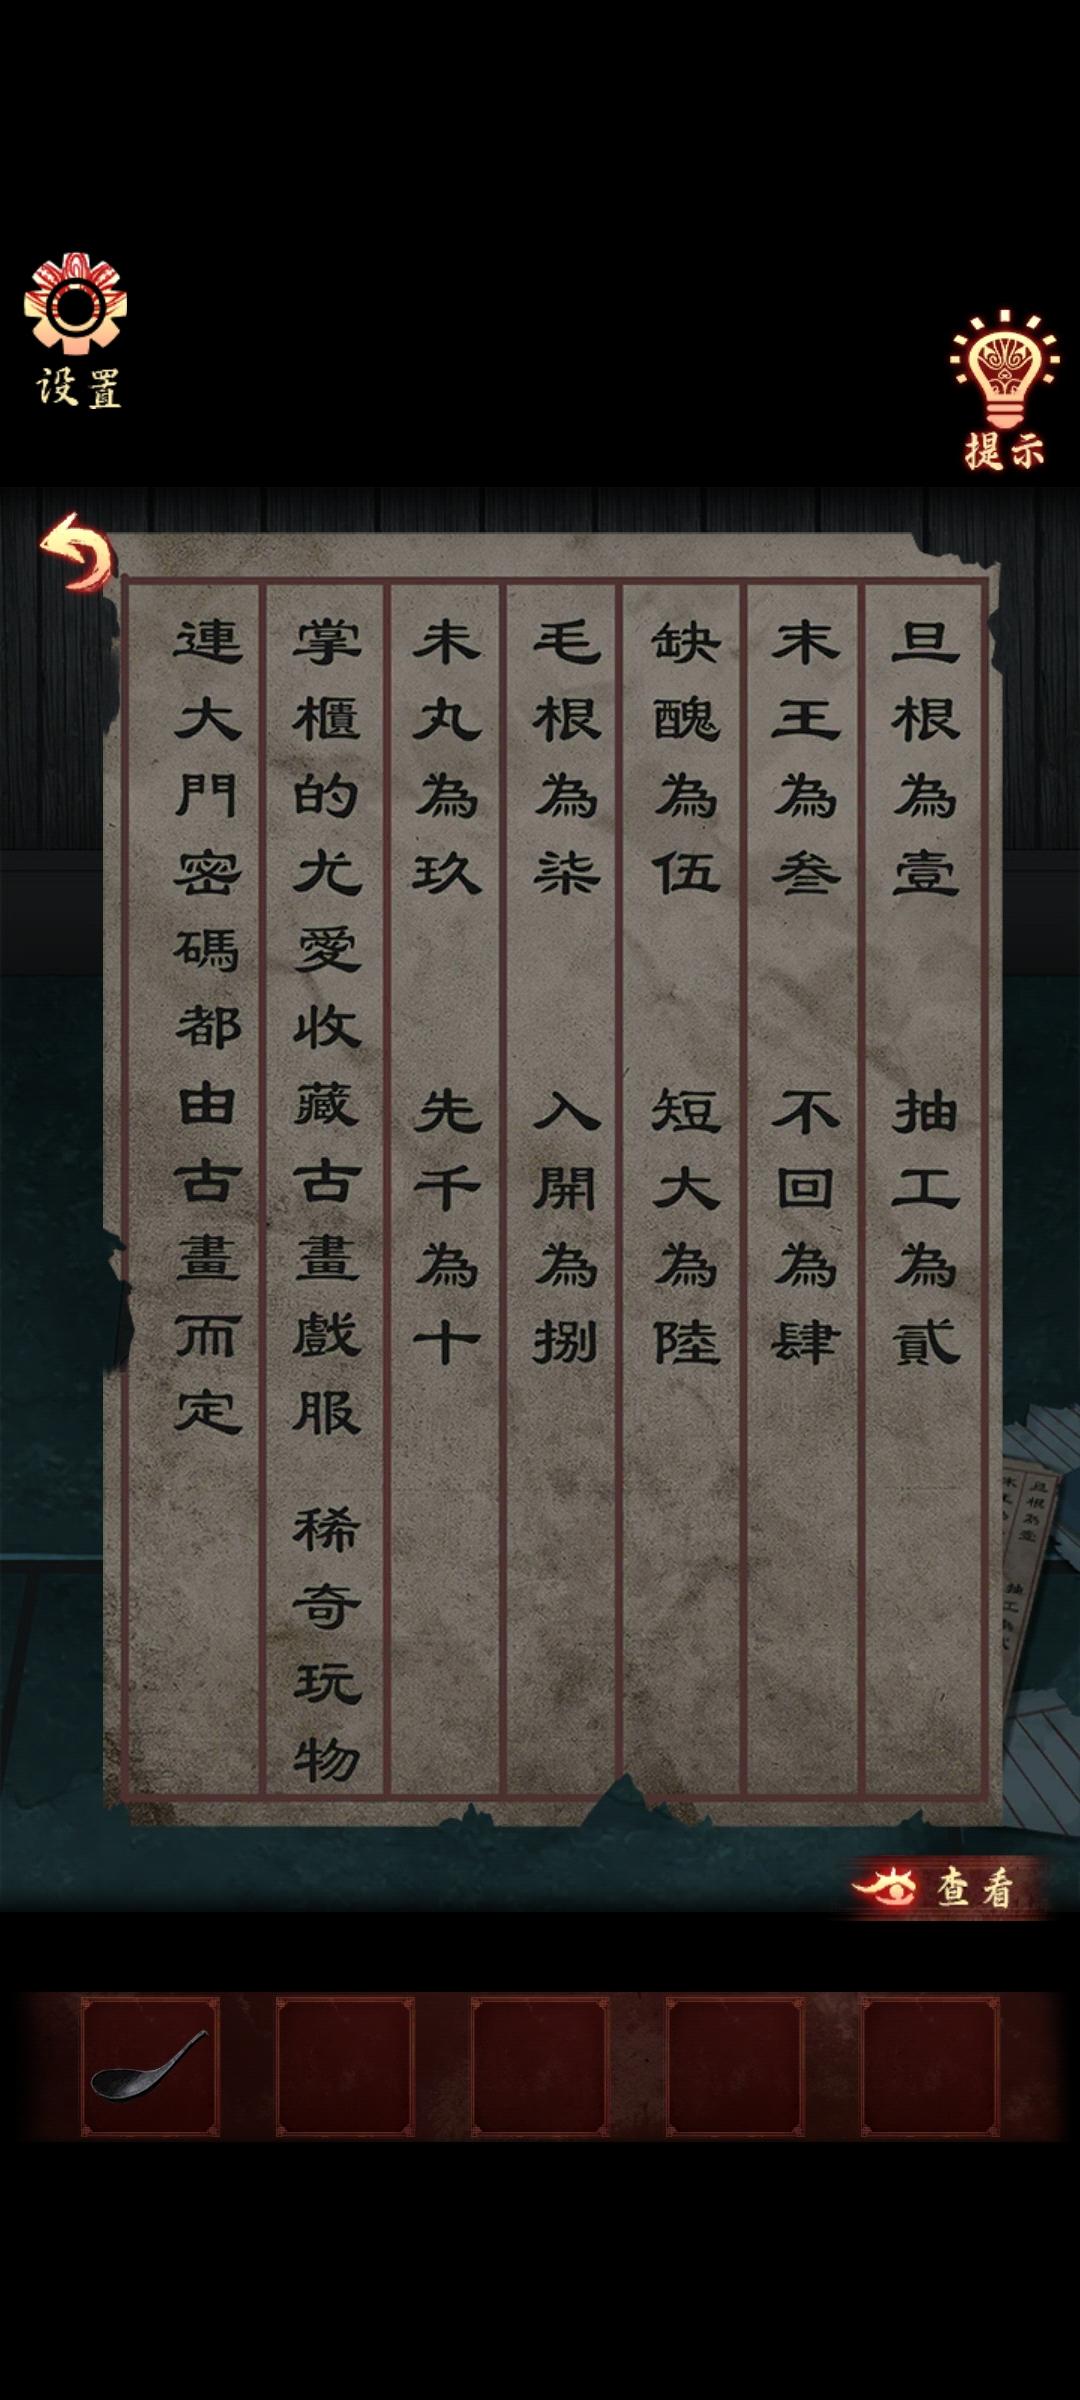 设置
提示
旦根為壹 抽工為貳
末王為叁 不回為肆
缺醜為伍 短大為陸
毛根為柒 入開為捌
未丸為玖 先千為十
掌櫃的尤愛收藏古畫戲服 稀奇玩物
連大門密碼都由古畫而定
旦根為壹 抽工為
查看